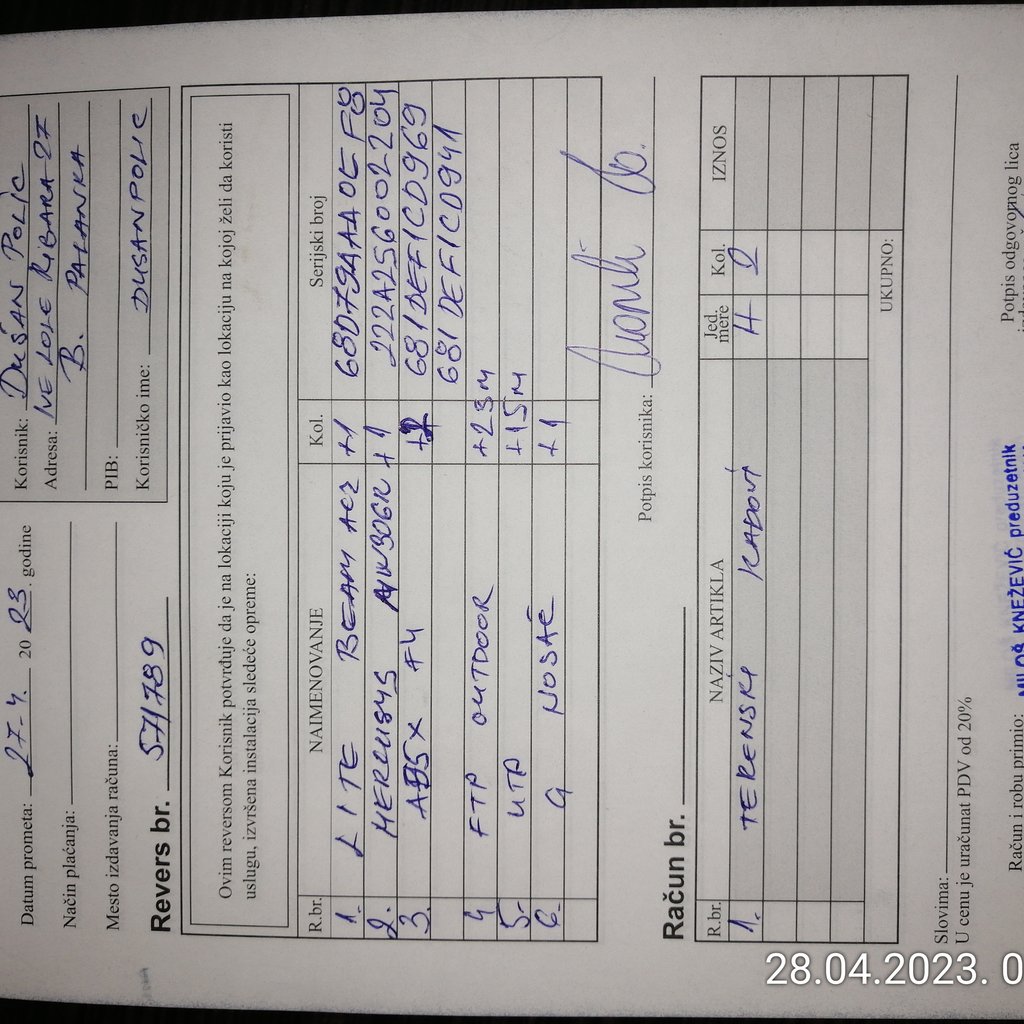 Datum prometa: 27-4. 2023. godine
Način plaćanja:
Mesto izdavanja računa:
Korisnik: DUŠAN POLIC
Adresa: IVE LOLE RIBARA 27
B. PALANKA
PIB:
Korisničko ime: DUSANPOLIC
Revers br. 571789
Ovim reversom Korisnik potvrđuje da je na lokaciji koju je prijavio kao lokaciju na kojoj želi da koristi
uslugu, izvršena instalacija sledeće opreme:
R.br. NAIMENOVANJE Kol. Serijski broj
1. LITE BEAM AC2 +1 68D79AAA0EF8
2. MERCUSYS MW306R +1 222A256002204
3. A95X F4 681DEF1CD969
681DEF1CD941
4 FTP OUTDOOR +23M
5- UTP +15M
6- G NOSAČ +1
Potpis korisnika:
Račun br.
R.br. NAZIV ARTIKLA Jed. mere Kol. IZNOS
1. TERENSKI RADOVI H 2
UKUPNO:
Slovima:
U cenu je uračunat PDV od 20%
Račun i robu primio:
MILOŠ KNEŽEVIĆ preduzetnik
Potpis odgovornog lica
28.04.2023. 0